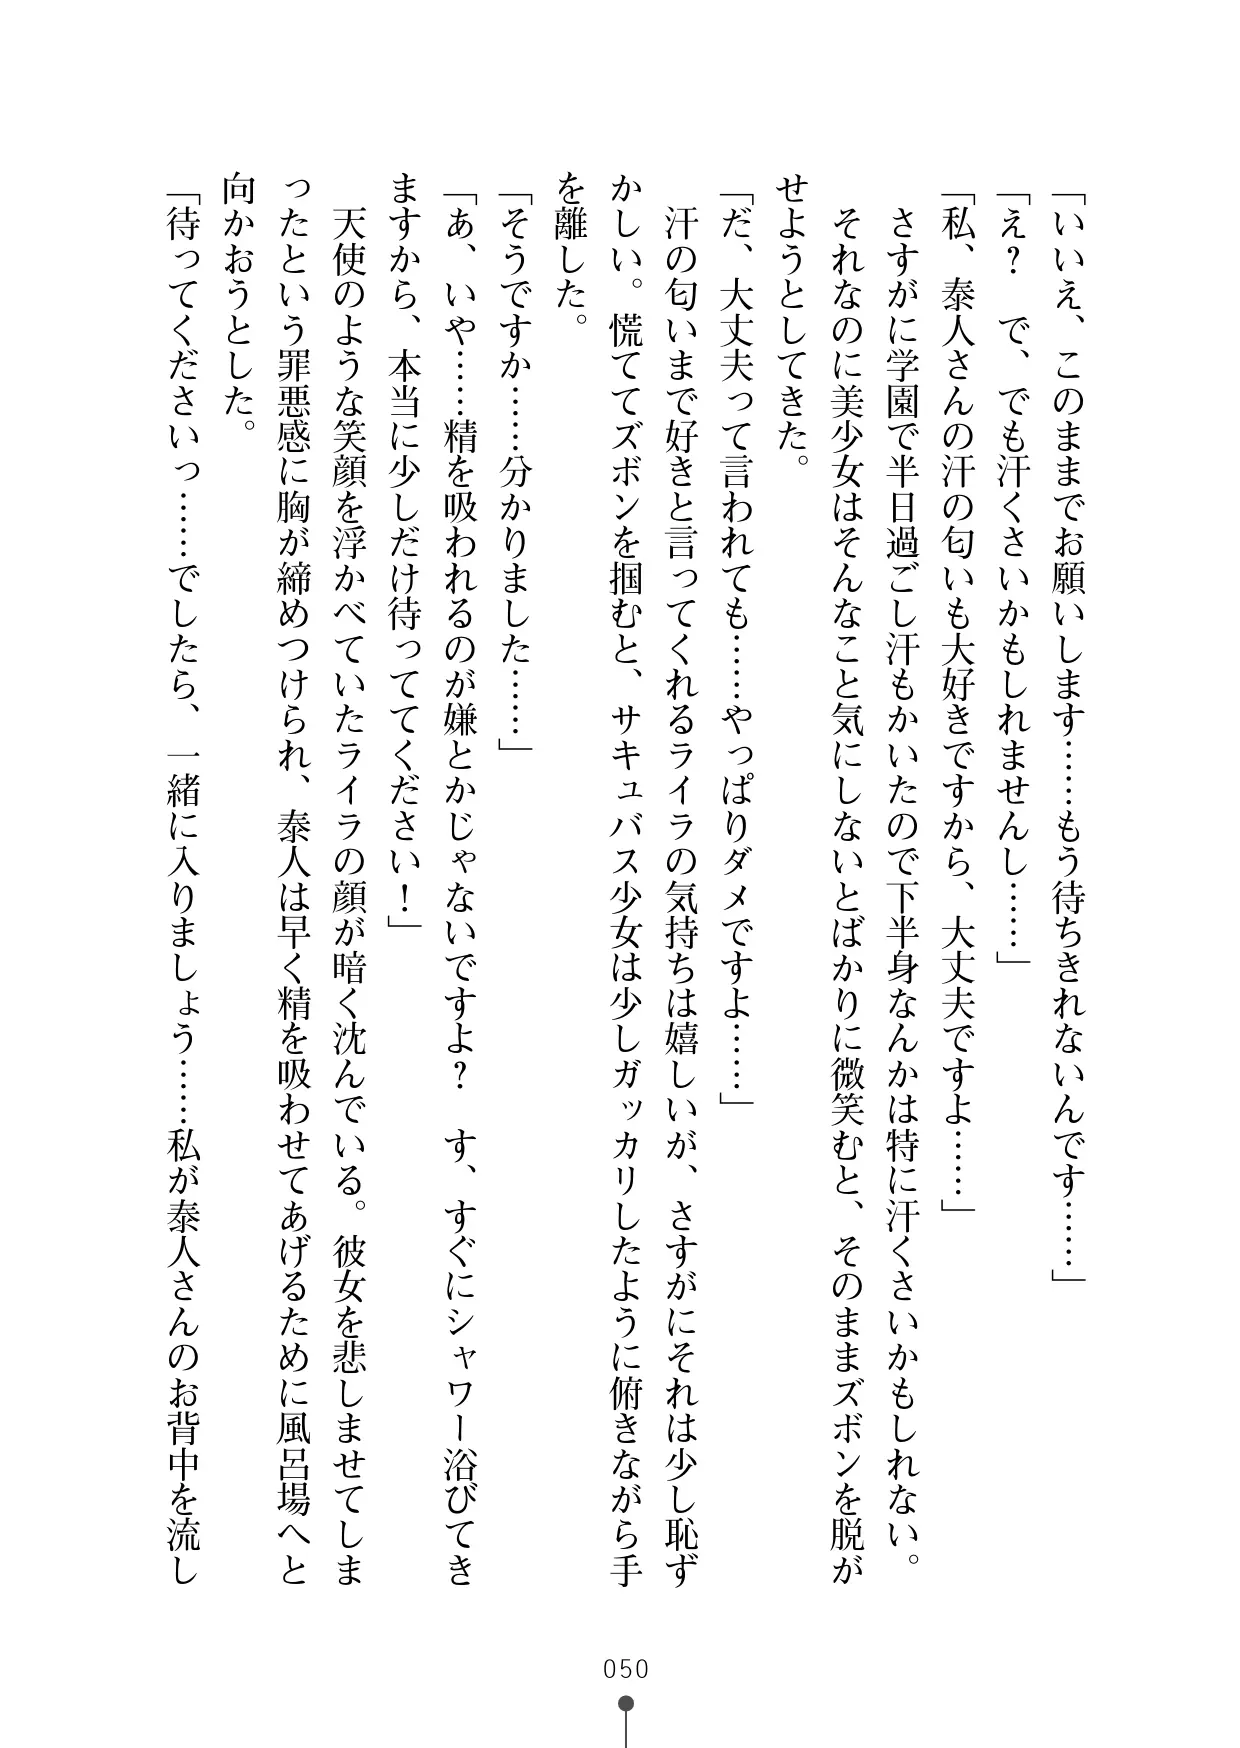 「いいえ、このままでお願いします……もう待ちきれないんです……」
「え？　で、でも汗くさいかもしれませんし……」
「私、泰人さんの汗の匂いも大好きですから、大丈夫ですよ……」
　さすがに学園で半日過ごし汗もかいたので下半身なんかは特に汗くさいかもしれない。
　それなのに美少女はそんなこと気にしないとばかりに微笑むと、そのままズボンを脱が
せようとしてきた。
「だ、大丈夫って言われても……やっぱりダメですよ……」
　汗の匂いまで好きと言ってくれるライラの気持ちは嬉しいが、さすがにそれは少し恥ず
かしい。慌ててズボンを掴むと、サキュバス少女は少しガッカリしたように俯きながら手
を離した。
「そうですか……分かりました……」
「あ、いや……精を吸われるのが嫌とかじゃないですよ？　す、すぐにシャワー浴びてき
ますから、本当に少しだけ待っててください！」
　天使のような笑顔を浮かべていたライラの顔が暗く沈んでいる。彼女を悲しませてしま
ったという罪悪感に胸が締めつけられ、泰人は早く精を吸わせてあげるために風呂場へと
向かおうとした。
「待ってくださいっ……でしたら、一緒に入りましょう……私が泰人さんのお背中を流し
050